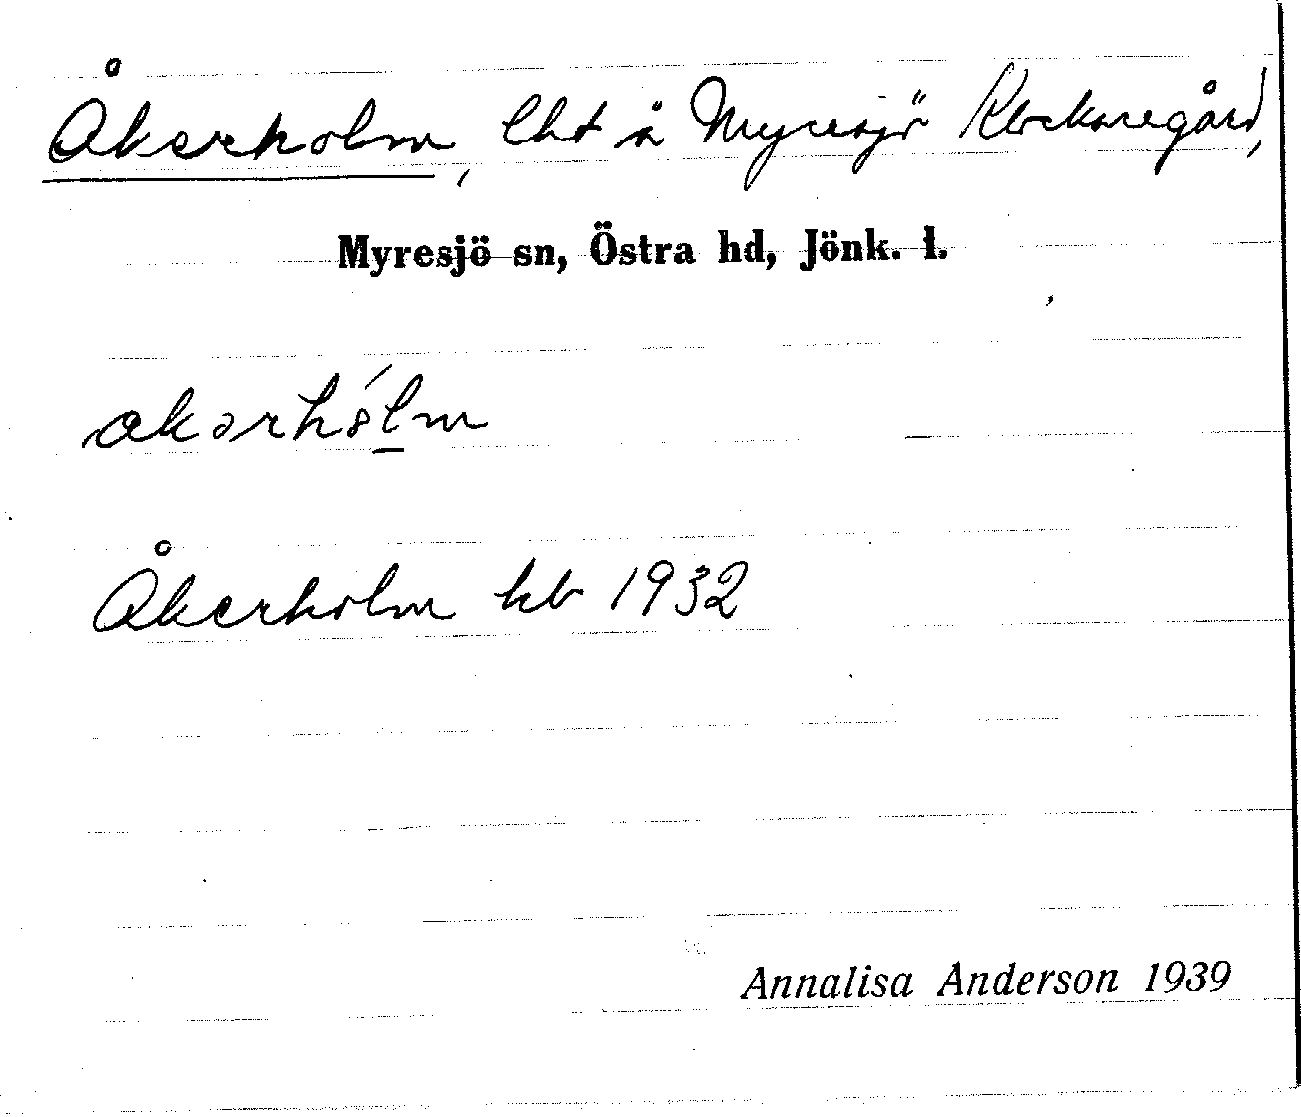 Åkerholm, lht å Myresjö Klockaregård,
Myresjö sn, Östra hd, Jönk. l.
åkərhólm
Åkerholm kb 1932
Annalisa Anderson 1939